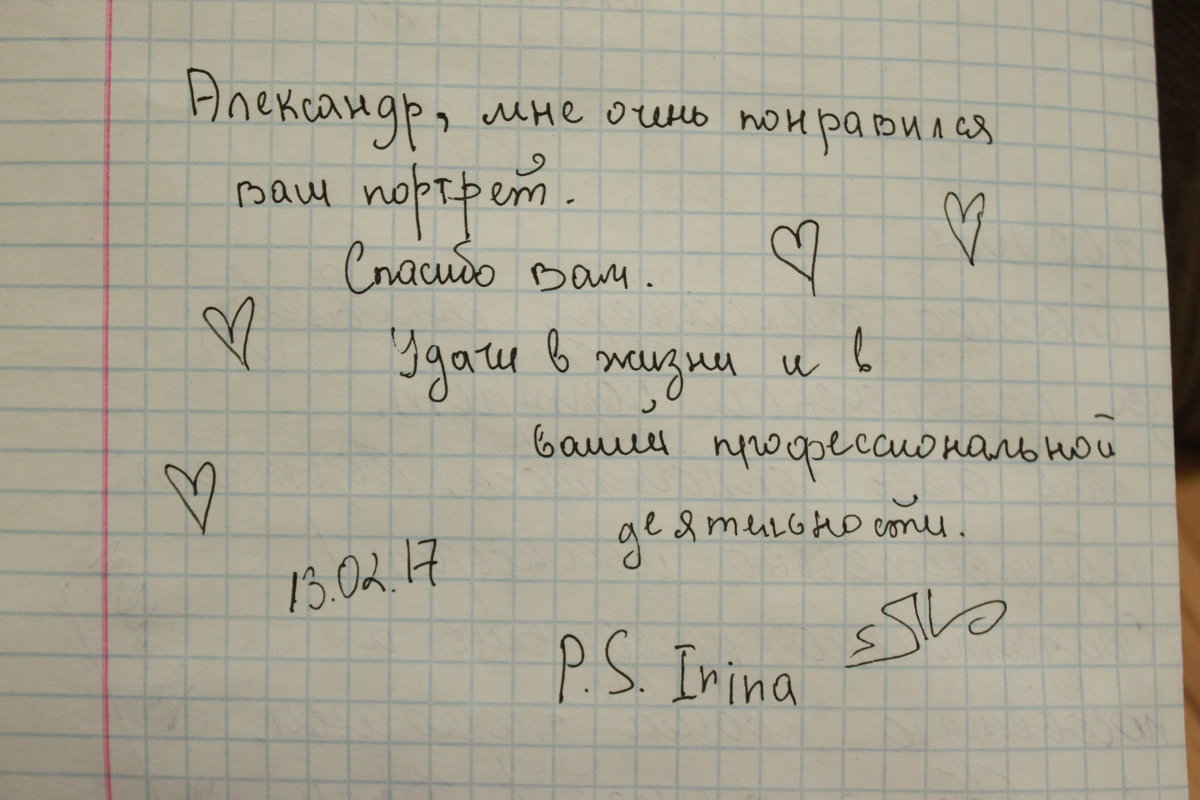 Александр, мне очень понравился
ваш портрет.
Спасибо вам.
Удачи в жизни и в
вашей профессиональной
деятельности.
13.02.17
P.S. Irina